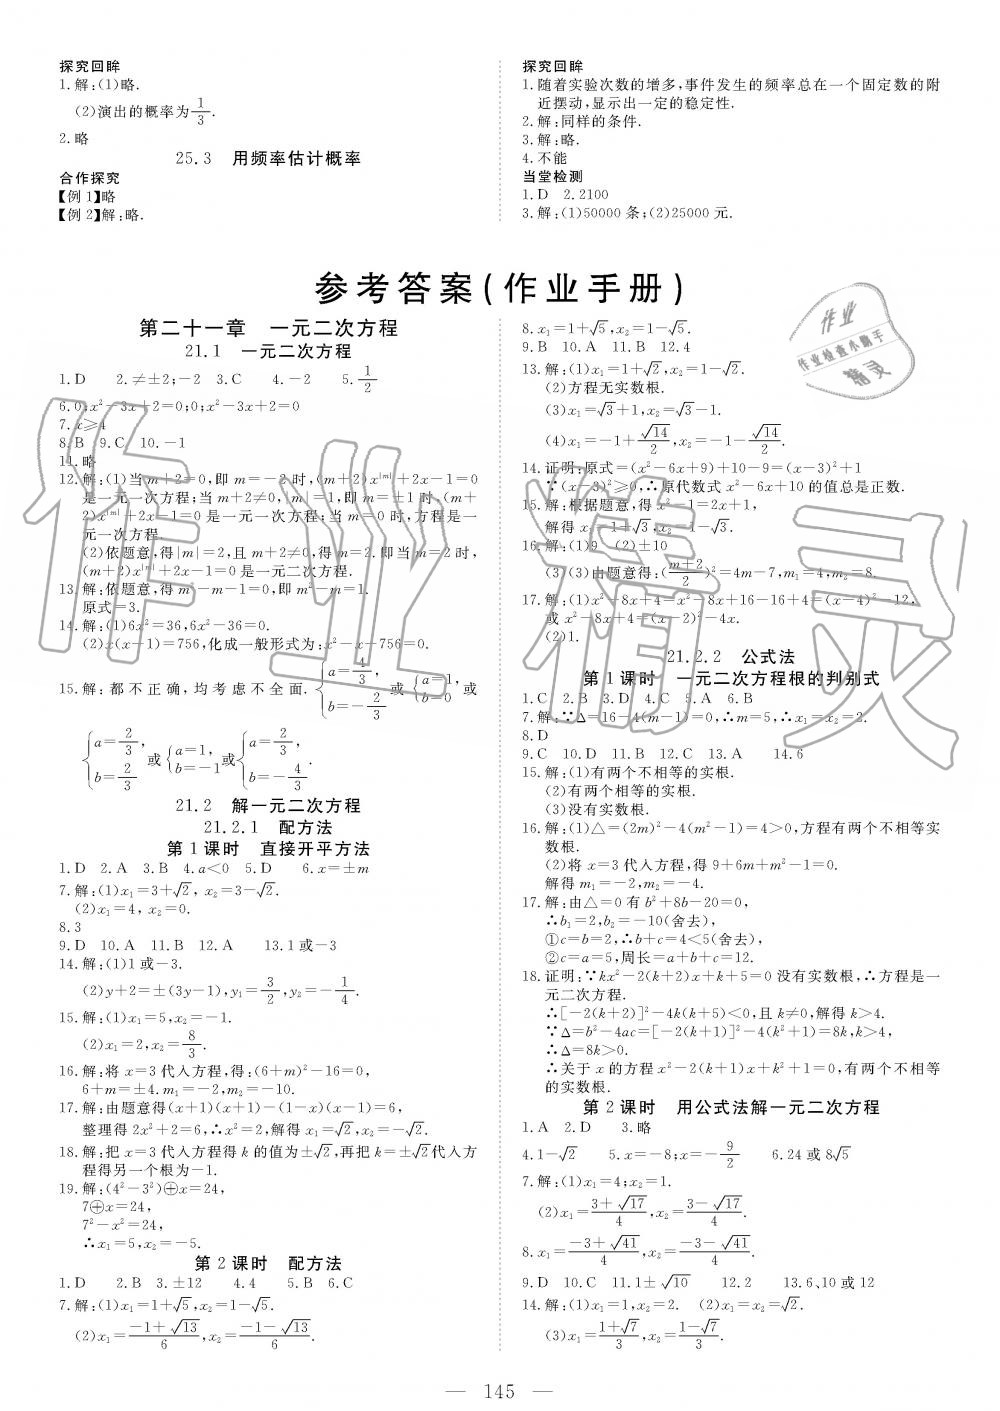 探究回眸
1.解:(1)略.
(2)演出的概率为1/3.
2.略
25.3 用频率估计概率
合作探究
【例1】略
【例2】解:略.
探究回眸
1.随着实验次数的增多,事件发生的频率总在一个固定数的附
近摆动,显示出一定的稳定性.
2.解:同样的条件.
3.解:略.
4.不能
当堂检测
1.D 2.2100
3.解:(1)50000条;(2)25000元.
参考答案(作业手册)
第二十一章 一元二次方程
21.1 一元二次方程
1.D 2.≠±2;-2 3.C 4.-2 5.1/2
6.0;x²-3x+2=0;0;x²-3x+2=0
7.x≥4
8.B 9.C 10.-1
11.略
12.解:(1)当m+2=0,即m=-2时,(m+2)x^|m|+2x-1=0
是一元一次方程;当m+2≠0,|m|=1,即m=±1时,(m+
2)x^|m|+2x-1=0是一元一次方程;当m=0时,方程是一
元一次方程.
(2)依题意,得|m|=2,且m+2≠0,得m=2.即当m=2时,
(m+2)x^|m|+2x-1=0是一元二次方程.
13.解:依题意,得m²-m-1=0,即m²-m=1.
原式=3.
14.解:(1)6x²=36,6x²-36=0.
(2)x(x-1)=756,化成一般形式为:x²-x-756=0.
15.解:都不正确,均考虑不全面.{a=4/3,b=-2/3 或{a=1,b=0 或
{a=2/3,b=2/3 或{a=1,b=-1 或{a=2/3,b=-4/3.
21.2 解一元二次方程
21.2.1 配方法
第1课时 直接开平方法
1.D 2.A 3.B 4.a<0 5.D 6.x=±m
7.解:(1)x₁=3+√2, x₂=3-√2.
(2)x₁=4, x₂=0.
8.3
9.D 10.A 11.B 12.A 13.1或-3
14.解:(1)1或-3.
(2)y+2=±(3y-1),y₁=3/2,y₂=-1/4.
15.解:(1)x₁=5,x₂=-1.
(2)x₁=2,x₂=8/3.
16.解:将x=3代入方程,得:(6+m)²-16=0,
6+m=±4.m₁=-2,m₂=-10.
17.解:由题意得(x+1)(x+1)-(1-x)(x-1)=6,
整理得2x²+2=6,∴x²=2,解得x₁=√2,x₂=-√2.
18.解:把x=3代入方程得k的值为±√2,再把k=±√2代入方
程得另一个根为-1.
19.解:(4²-3²)⊕x=24,
7⊕x=24,
7²-x²=24,
∴x₁=5,x₂=-5.
第2课时 配方法
1.D 2.B 3.±12 4.4 5.B 6.C
7.解:(1)x₁=1+√5,x₂=1-√5.
(2)x₁=(-1+√13)/6,x₂=(-1-√13)/6.
8.x₁=1+√5,x₂=1-√5.
9.B 10.A 11.B 12.4
13.解:(1)x₁=1+√2,x₂=1-√2.
(2)方程无实数根.
(3)x₁=√3+1,x₂=√3-1.
(4)x₁=-1+√14/2,x₂=-1-√14/2.
14.证明:原式=(x²-6x+9)+10-9=(x-3)²+1
∵(x-3)²≥0,∴原代数式x²-6x+10的值总是正数.
15.解:根据题意,得x²-1=2x+1,
解得x₁=1+√3,x₂=1-√3.
16.解:(1)9 (2)±10
(3)(3)由题意得:((m+2)/2)²=4m-7,m₁=4,m₂=8.
17.解:(1)x²-8x+4=x²-8x+16-16+4=(x-4)²-12,
或x²-8x+4=(x-2)²-4x.
(2)1.
21.2.2 公式法
第1课时 一元二次方程根的判别式
1.C 2.B 3.D 4.C 5.A 6.B
7.解:∵Δ=16-4(m-1)=0,∴m=5,∴x₁=x₂=2.
8.D
9.C 10.D 11.B 12.C 13.A 14.6
15.解:(1)有两个不相等的实根.
(2)有两个相等的实根.
(3)没有实数根.
16.解:(1)△=(2m)²-4(m²-1)=4>0,方程有两个不相等实
数根.
(2)将x=3代入方程,得9+6m+m²-1=0.
解得m₁=-2,m₂=-4.
17.解:由△=0有b²+8b-20=0,
∴b₁=2,b₂=-10(舍去),
①c=b=2,∴b+c=4<5(舍去),
②c=a=5,周长=a+b+c=12.
18.证明:∵kx²-2(k+2)x+k+5=0没有实数根,∴方程是一
元二次方程.
∴[-2(k+2)]²-4k(k+5)<0,且k≠0,解得k>4.
∵Δ=b²-4ac=[-2(k+1)]²-4(k²+1)=8k,k>4,
∴Δ=8k>0.
∴关于x的方程x²-2(k+1)x+k²+1=0,有两个不相等
的实数根.
第2课时 用公式法解一元二次方程
1.A 2.D 3.略
4.1-√2 5.x=-8;x=-9/2 6.24或8√5
7.解:(1)x₁=4;x₂=1.
(2)x₁=(3+√17)/4,x₂=(3-√17)/4.
8.x₁=(-3+√41)/4,x₂=(-3-√41)/4.
9.D 10.C 11.1±√10 12.2 13.6、10或12
14.解:(1)x₁=1,x₂=2. (2)x₁=x₂=√2.
(3)x₁=(1+√7)/3,x₂=(1-√7)/3.
— 145 —
作业精灵
作业
作业检查小助手
精灵